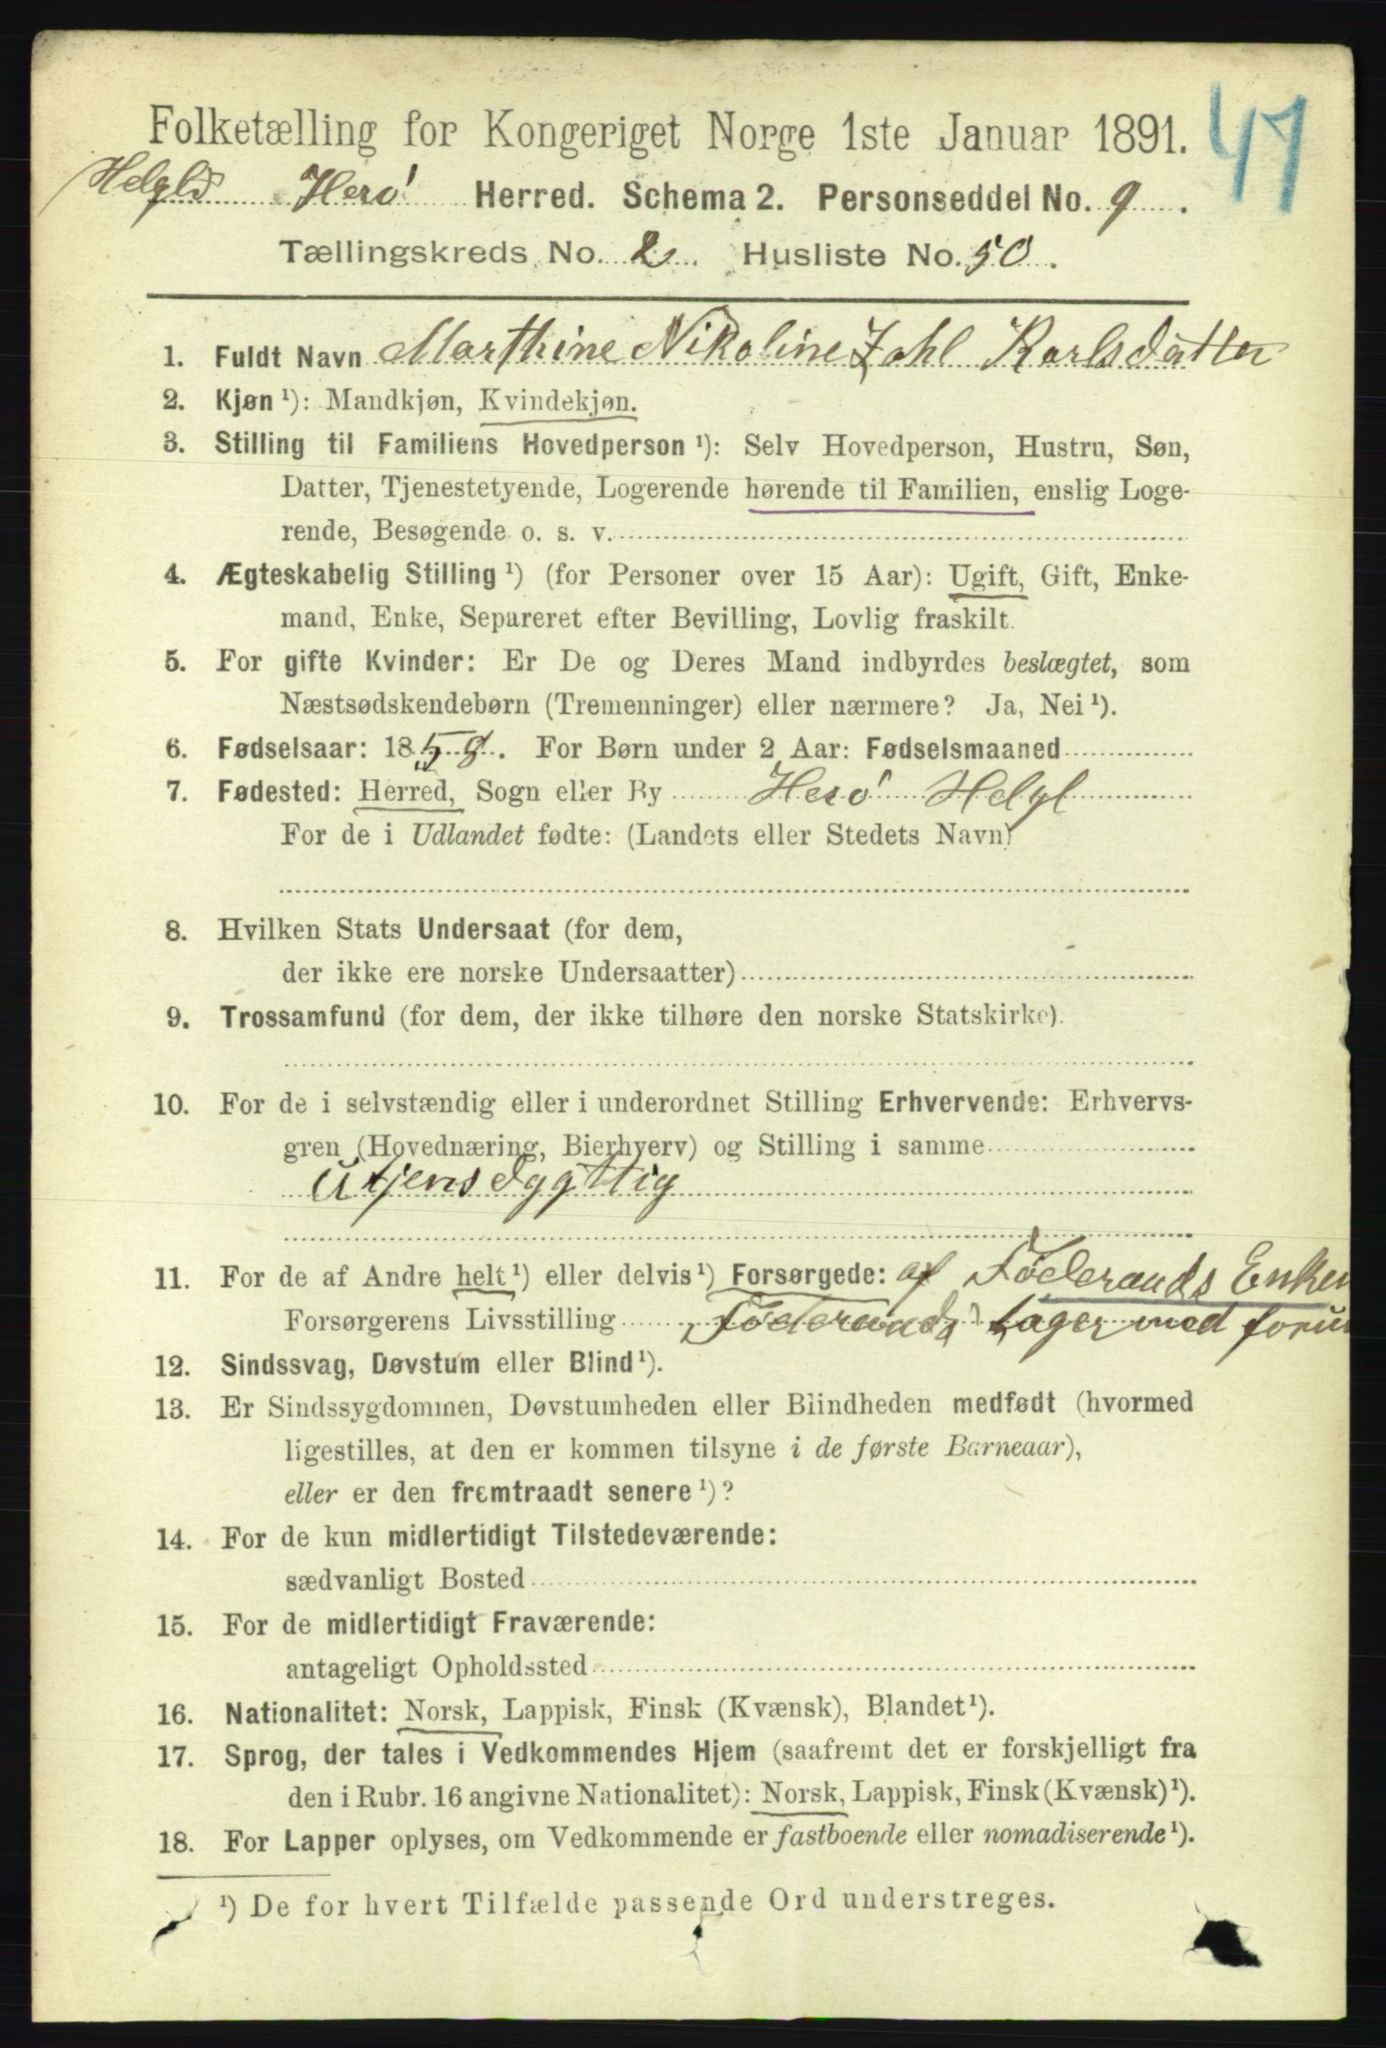 47
Folketælling for Kongeriget Norge 1ste Januar 1891.
Helgld Herø Herred. Schema 2. Personseddel No. 9.
Tællingskreds No. 2. Husliste No. 50.
1. Fuldt Navn Marthine Nikoline Zahl Karlsdatter
2. Kjøn ¹): Mandkjøn, Kvindekjøn.
3. Stilling til Familiens Hovedperson ¹): Selv Hovedperson, Hustru, Søn,
Datter, Tjenestetyende, Logerende hørende til Familien, enslig Loge-
rende, Besøgende o. s. v.
4. Ægteskabelig Stilling ¹) (for Personer over 15 Aar): Ugift, Gift, Enke-
mand, Enke, Separeret efter Bevilling, Lovlig fraskilt.
5. For gifte Kvinder: Er De og Deres Mand indbyrdes beslægtet, som
Næstsødskendebørn (Tremenninger) eller nærmere? Ja, Nei ¹).
6. Fødselsaar: 1858. For Børn under 2 Aar: Fødselsmaaned
7. Fødested: Herred, Sogn eller By Herø Helgl
For de i Udlandet fødte: (Landets eller Stedets Navn)
8. Hvilken Stats Undersaat (for dem,
der ikke ere norske Undersaatter)
9. Trossamfund (for dem, der ikke tilhøre den norske Statskirke).
10. For de i selvstændig eller i underordnet Stilling Erhvervende: Erhvervs-
gren (Hovednæring, Bierhverv) og Stilling i samme
Utjensdygttig
11. For de af Andre helt ¹) eller delvis ¹) Forsørgede: af Føderaads Enken
Forsørgerens Livsstilling Føderaads tager med
12. Sindssvag, Døvstum eller Blind ¹).
13. Er Sindssygdommen, Døvstumheden eller Blindheden medfødt (hvormed
ligestilles, at den er kommen tilsyne i de første Barneaar),
eller er den fremtraadt senere ¹)?
14. For de kun midlertidigt Tilstedeværende:
sædvanligt Bosted
15. For de midlertidigt Fraværende:
antageligt Opholdssted
16. Nationalitet: Norsk, Lappisk, Finsk (Kvænsk), Blandet ¹).
17. Sprog, der tales i Vedkommendes Hjem (saafremt det er forskjelligt fra
den i Rubr. 16 angivne Nationalitet): Norsk, Lappisk, Finsk (Kvænsk) ¹).
18. For Lapper oplyses, om Vedkommende er fastboende eller nomadiserende ¹).
¹) De for hvert Tilfælde passende Ord understreges.